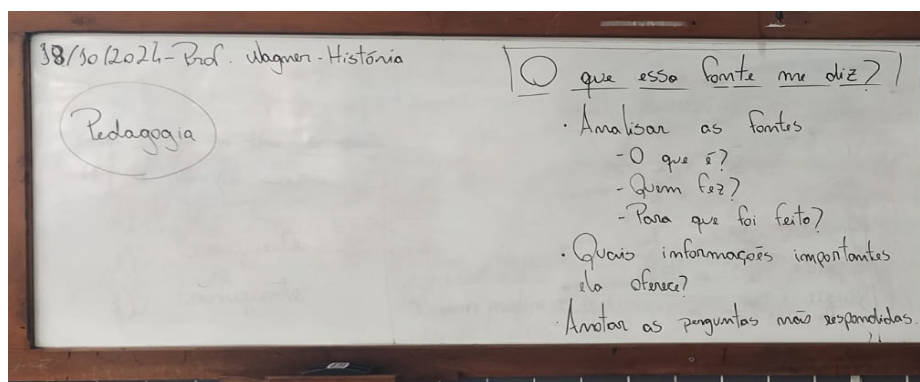 18/10/2024 - Prof. Wagner - História
Pedagogia
O que essa fonte me diz?
· Analisar as fontes
- O que é?
- Quem fez?
- Para que foi feito?
· Quais informações importantes
ela oferece?
· Anotar as perguntas não respondidas.